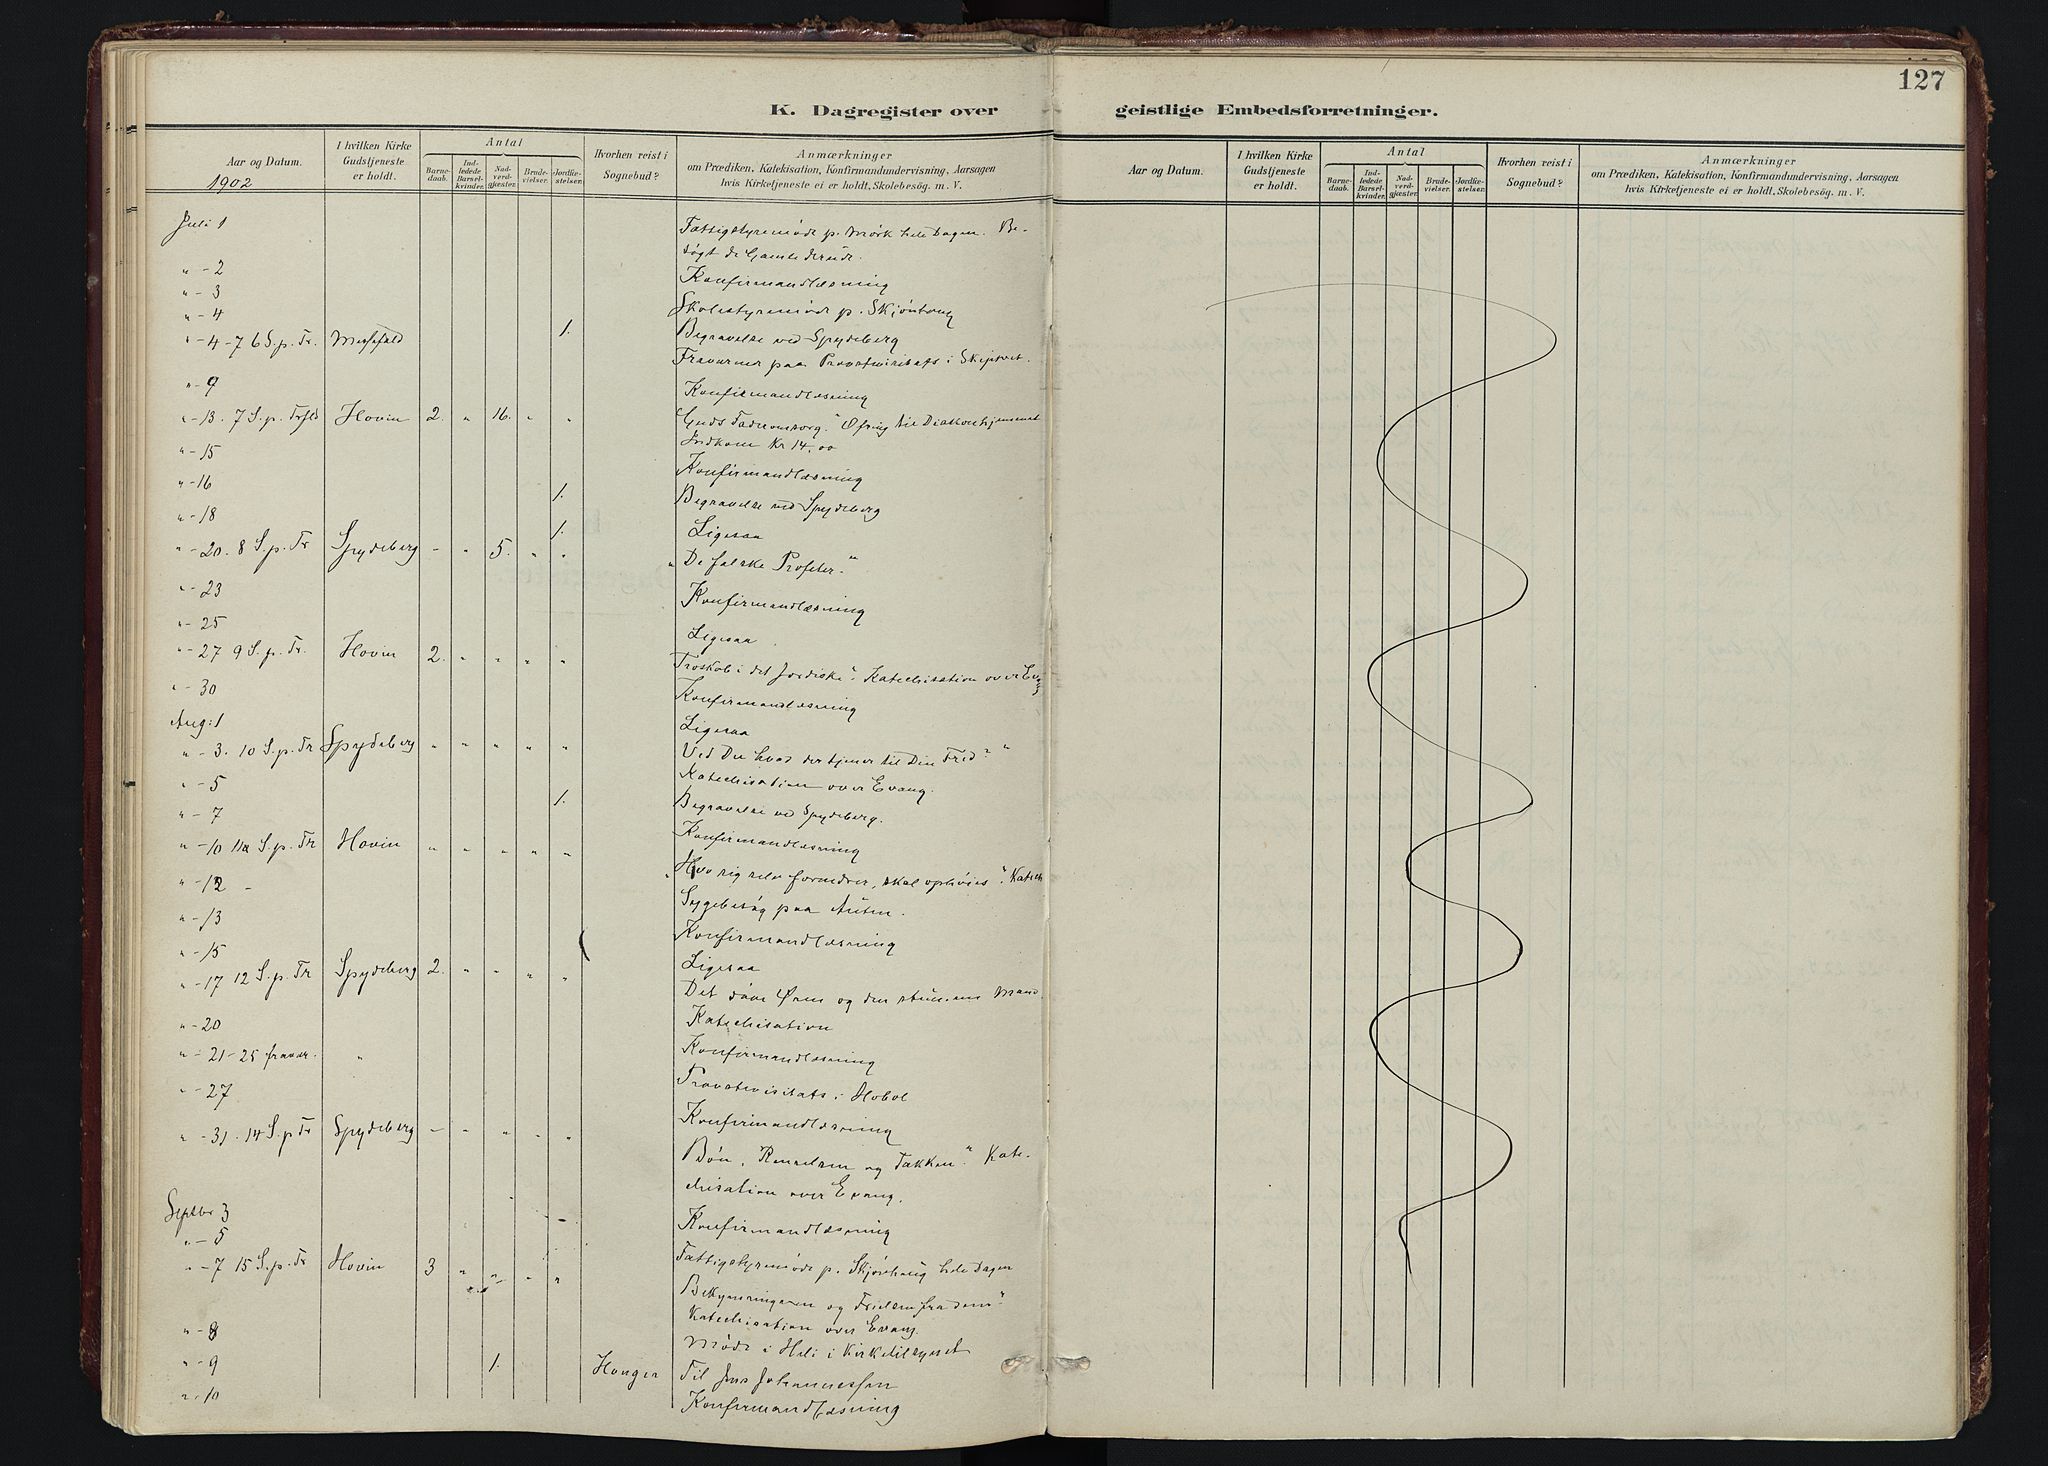 127
K. Dagregister over geistlige Embedsforretninger.
Aar og Datum. I hvilken Kirke Gudstjeneste er holdt. Antal Barnedaab. Indledede Barselkvinder. Nadverdgjester. Brudevielser. Jordfæstelser. Hvorhen reist i Sognebud? Anmærkninger om Prædiken, Katekisation, Konfirmandundervisning, Aarsagen hvis Kirketjeneste ei er holdt, Skolebesög. m. V.
1902
Juli 1 Fattigstyremöde p. Mörk hele Dagen. Be-
sögt de Gamle derude.
" - 2 Konfirmandlæsning
" - 3 Skolestyremöde p. Skjönhaug
" - 4 1. Begravelse ved Spydeberg
" - 4-7 6 S. p. Tr. Messefald Fraværner paa Provstevisitats i Skiptvet.
" - 9 Konfirmandlæsning
" - 13. 7 S. p. Hovin 2. " 16. " " Guds Faderomsorg." Ofring til Diakonhjemmet
Indkom Kr 14,00
" - 15 Konfirmandlæsning
" - 16 1. Begravelse ved Spydeberg
" - 18 1. Ligesaa
" - 20. 8 S. p. Tr Spydeberg - " 5. " " "De falske Profeter."
" - 23 Konfirmandlæsning
" - 25 Ligesaa
" - 27 9 S. p. Tr. Hovin 2. " " " " Troskab i det Jordiske". Katechisation over Evang
" - 30 Konfirmandlæsning
Aug: 1 Ligesaa
" - 3. 10 S. p. Tr Spydeberg " " " " " Ved Du hvad der tjener til Din Fred?"
Katechisation over Evang.
" - 5 1. Begravelse ved Spydeberg.
" - 7 Konfirmandlæsning
" - 10 11 S. p. Tr Hovin " " " " " "Hvo sig selv fornedrer, skal ophöies". Katech
" - 12 - Sygebesög paa
" - 13 Konfirmandlæsning
" - 15 Ligesaa
" - 17 12 S. p. Tr Spydeberg 2. " " " " Det döve Øre og den stumme Mund.
Katechisation
" - 20 Konfirmandlæsning
" - 21-25 fravær. " Provstevisitats i Hobøl
" - 27 Konfirmandlæsning
" - 31. 14 S. p. Tr Spydeberg - " " " " Bön, Renselsen og Takken." Kate-
chisation over Evang.
Septbr 3 Konfirmandlæsning
" - 5 Fattigstyremöde p. Skjönhaug hele Dagen
" - 7 15 S. p. Tr Hovin 3 " " " " Bekymringerne og Frielsen fra dem"
Katechisation over Evang.
" - 8 Möde i Heli i Kirketilsynet
" - 9 1. Til Johannessen
" - 10 Konfirmandlæsning
Aar og Datum. I hvilken Kirke Gudstjeneste er holdt. Antal Barnedaab. Indledede Barselkvinder. Nadverdgjester. Brudevielser. Jordfæstelser. Hvorhen reist i Sognebud? Anmærkninger om Prædiken, Katekisation, Konfirmandundervisning, Aarsagen hvis Kirketjeneste ei er holdt, Skolebesög. m. V.